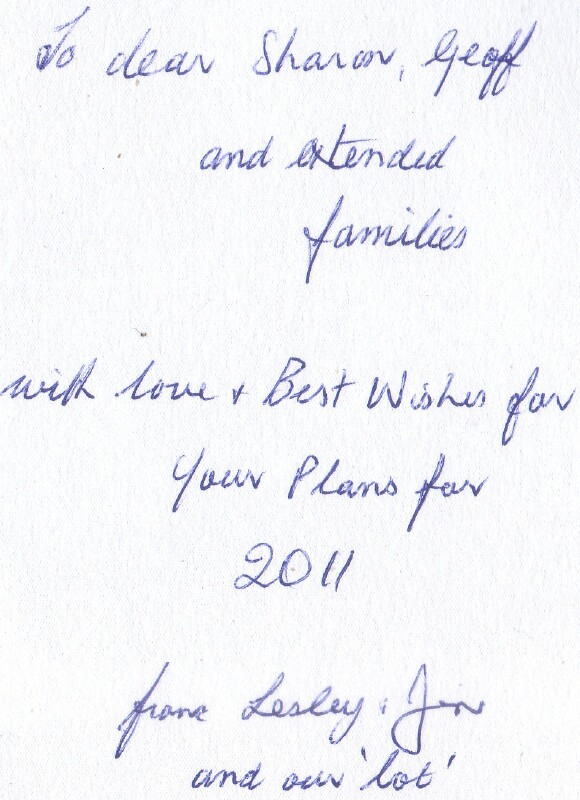 To dear Sharon, Geoff
and extended
families
with love + Best Wishes for
Your Plans for
2011
from Lesley + Jim
and our 'lot'